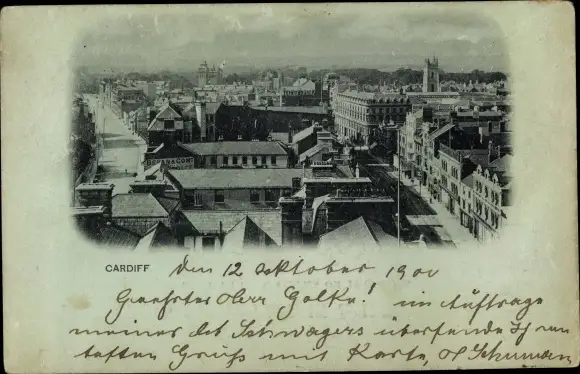 BEVAN & COMP
CARDIFF
den 12 Oktober 1900
Geehrter Herr Golke! im Auftrage
meines lb Schwagers übersende Ihnen
besten Gruß mit Karte, O Schumann